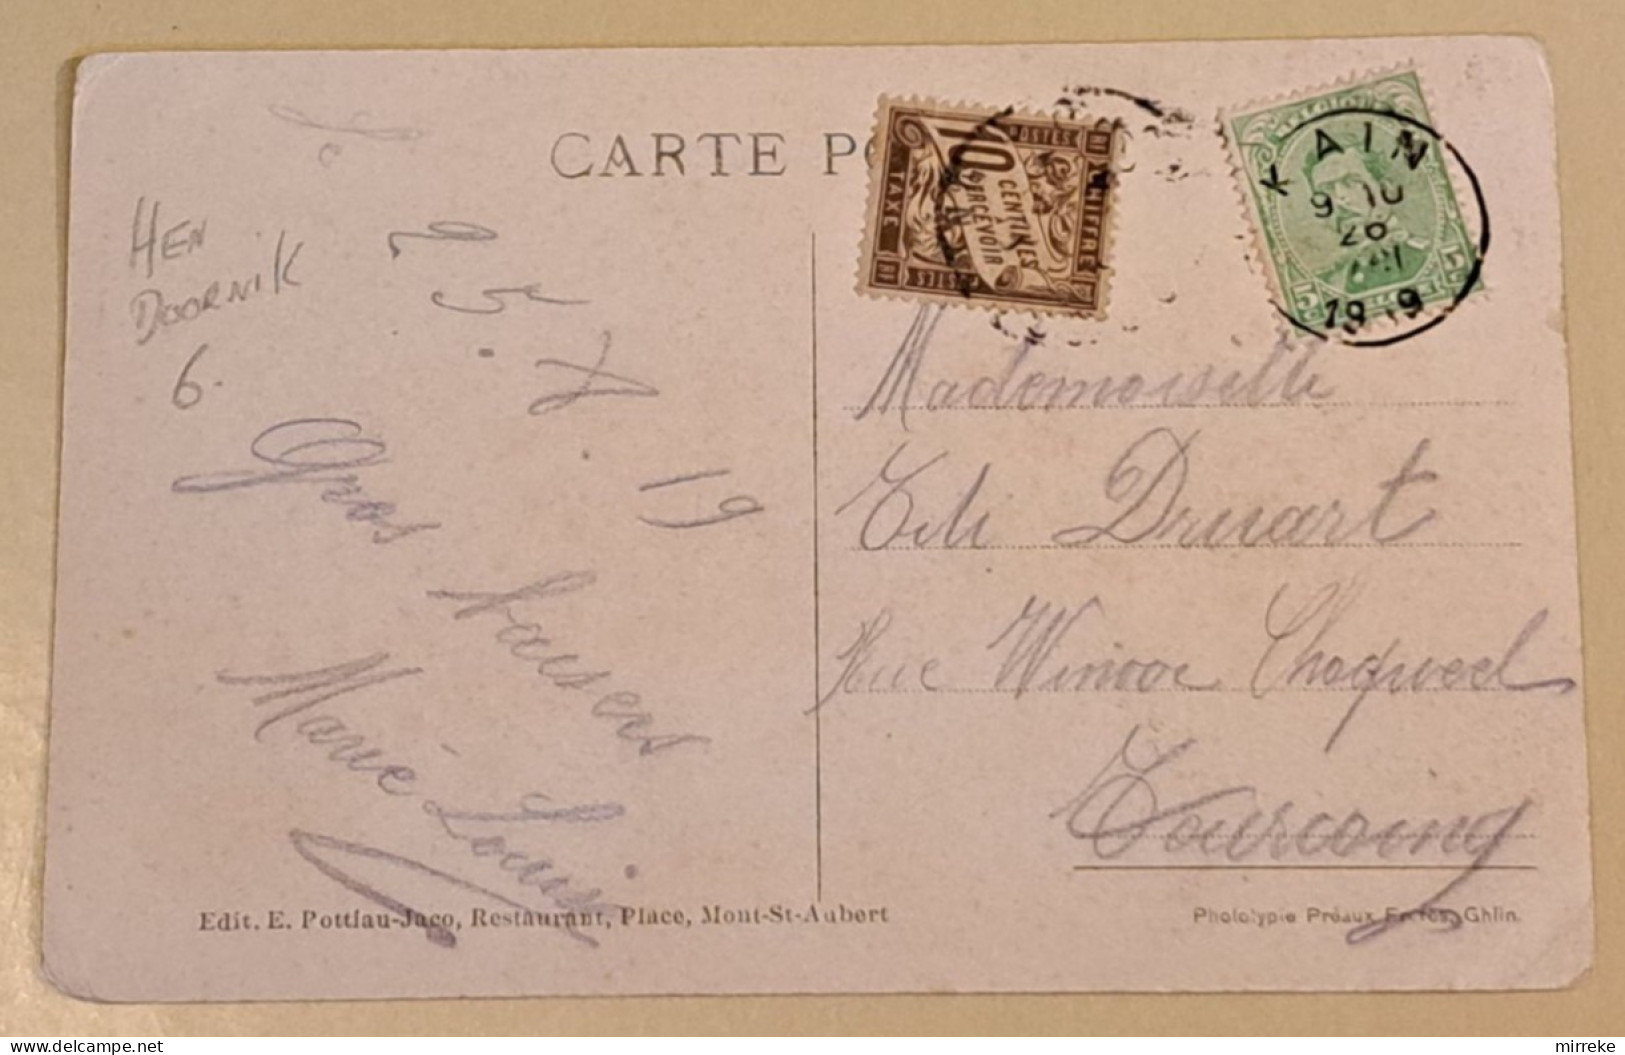 CARTE PO
HEN
DOORNIK
6.
25.7.19
Gros baisers
Marie-Louise
POSTES
CHIFFRE
TAXE
10 CENTIMES
À
PERCEVOIR
POSTES
KAIN
9 10
26
VII
1919
5
5
Mademoiselle
Druart
Rue Winoc Chocqueel
Tourcoing
Edit. E. Pottiau-Jaco, Restaurant, Place, Mont-St-Aubert
Phototypie Préaux Frères, Ghlin.
mirreke